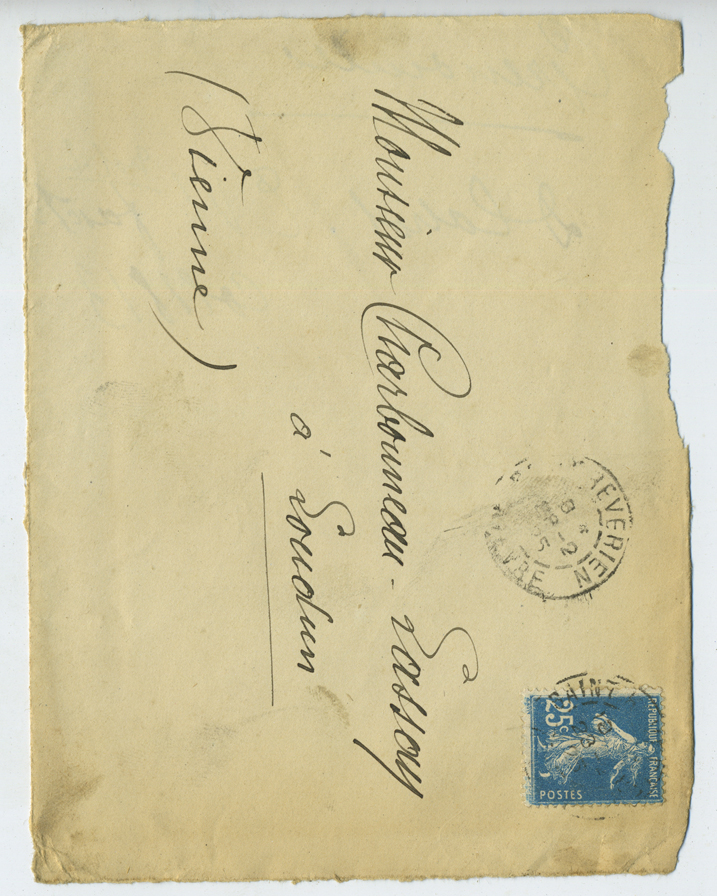 Monsieur Charbonneau-Lassay
à Loudun
(Vienne)
REVERIEN
SAINT
25c
REPUBLIQUE FRANÇAISE
POSTES